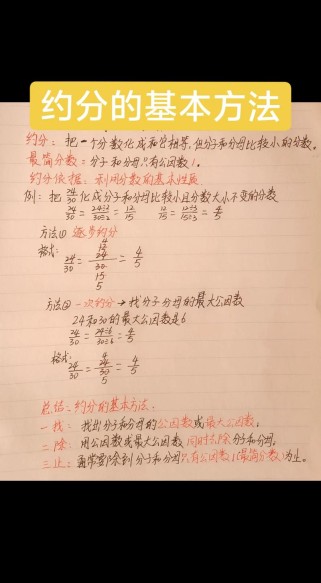 约分的基本方法
约分：把一个分数化成和它相等，但分子和分母比较小的分数。
最简分数：分子和分母只有公因数1。
约分依据：利用分数的基本性质
例：把24/30化成分子和分母比较小且分数大小不变的分数
24/30=24÷2/30÷2=12/15 12/15=12÷3/15÷3=4/5
方法① 逐步约分
格式：
4
12
24/30=24/30=4/5
15
5
方法② 一次约分→找分子分母的最大公因数
24和30的最大公因数是6
24/30=24÷6/30÷6=4/5
格式：
4
24/30=24/30=4/5
5
总结：约分的基本方法
一找：找出分子和分母的公因数或最大公因数。
二除：用公因数或最大公因数同时去除分子和分母。
三止：通常要除到分子和分母只有公因数1(最简分数)为止。